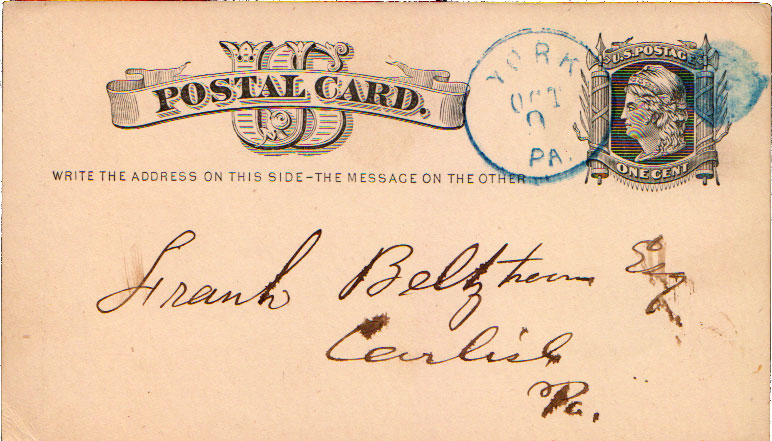 US
POSTAL CARD.
YORK
OCT
PA.
U.S. POSTAGE
ONE CENT
WRITE THE ADDRESS ON THIS SIDE–THE MESSAGE ON THE OTHER
Frank Beltzhoover Esq
Carlisle
Pa.